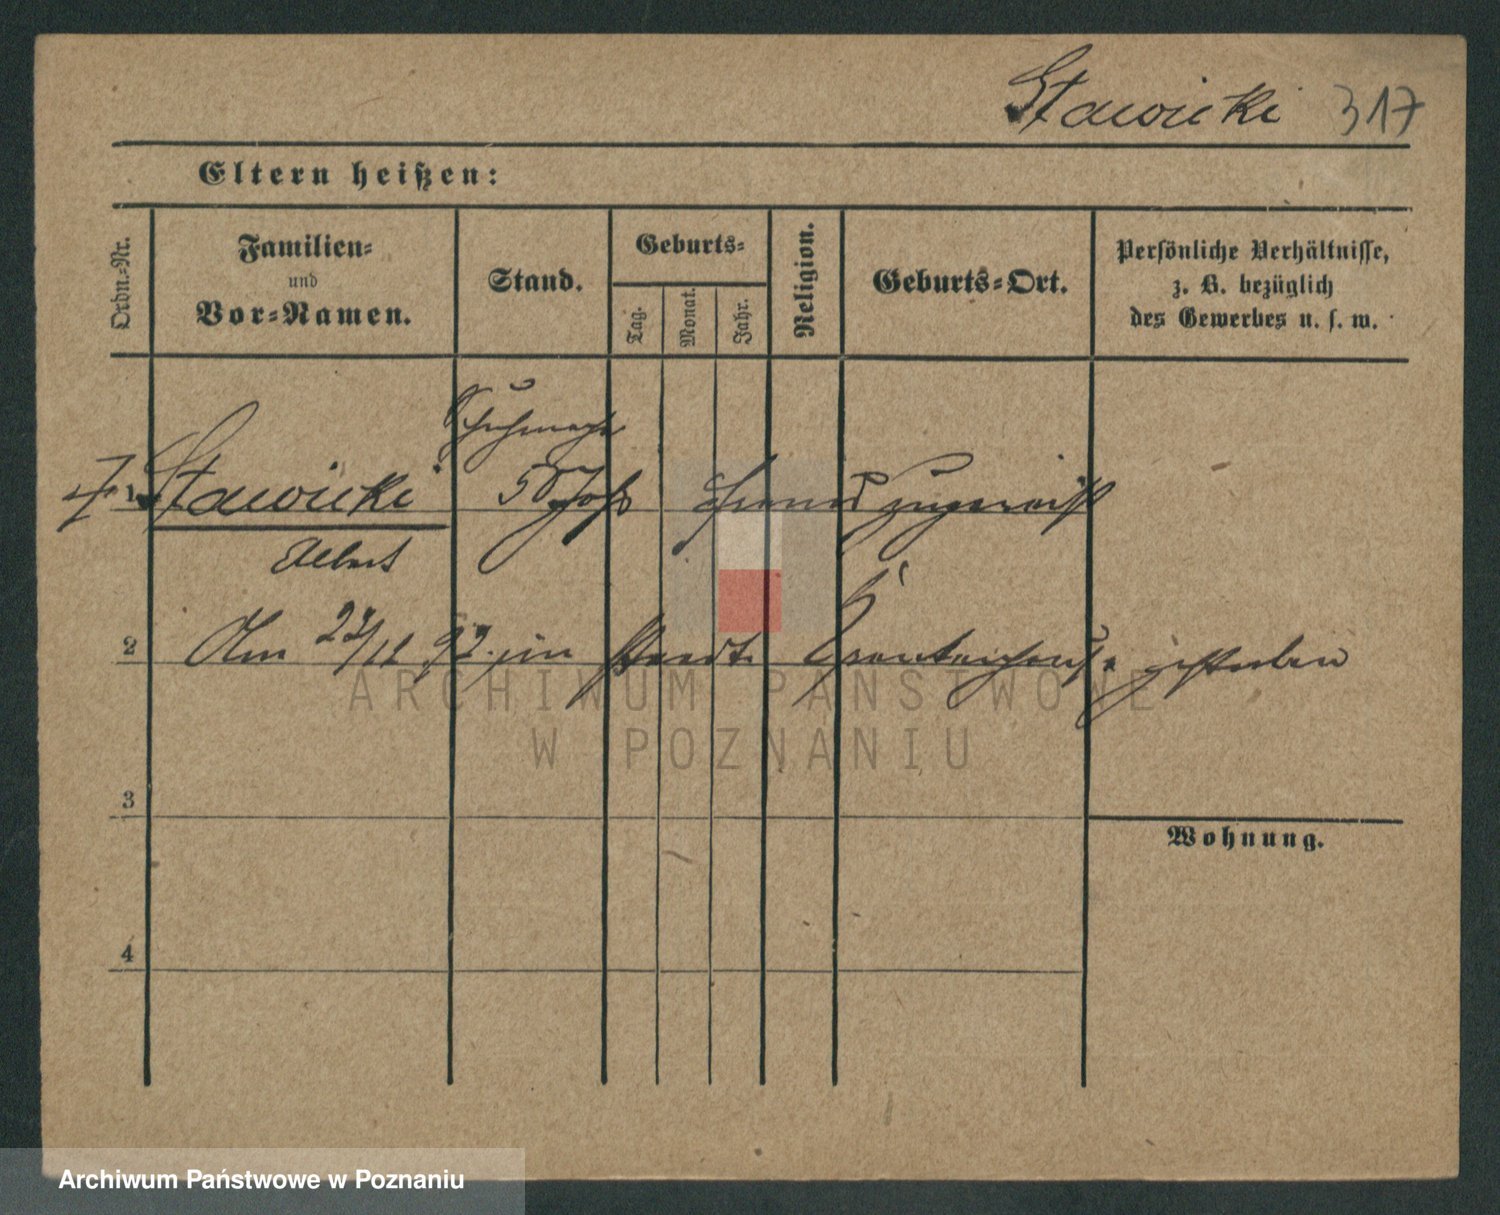 Stawicki 317
Eltern heißen:
Ordn.-Nr.
Familien-
und
Vor-Namen.
Stand.
Geburts-
Tag.
Monat.
Jahr.
Religion.
Geburts-Ort.
Persönliche Verhältnisse,
z. B. bezüglich
des Gewerbes u. s. w.
Schuhmacher
1 Stawicki 50 Jahr fremd zugereist
Albert
2 Am 22/11 92. im Stadt Krankenhause gestorben
ARCHIWUM PAŃSTWOWE
W POZNANIU
3
Wohnung.
4
Archiwum Państwowe w Poznaniu